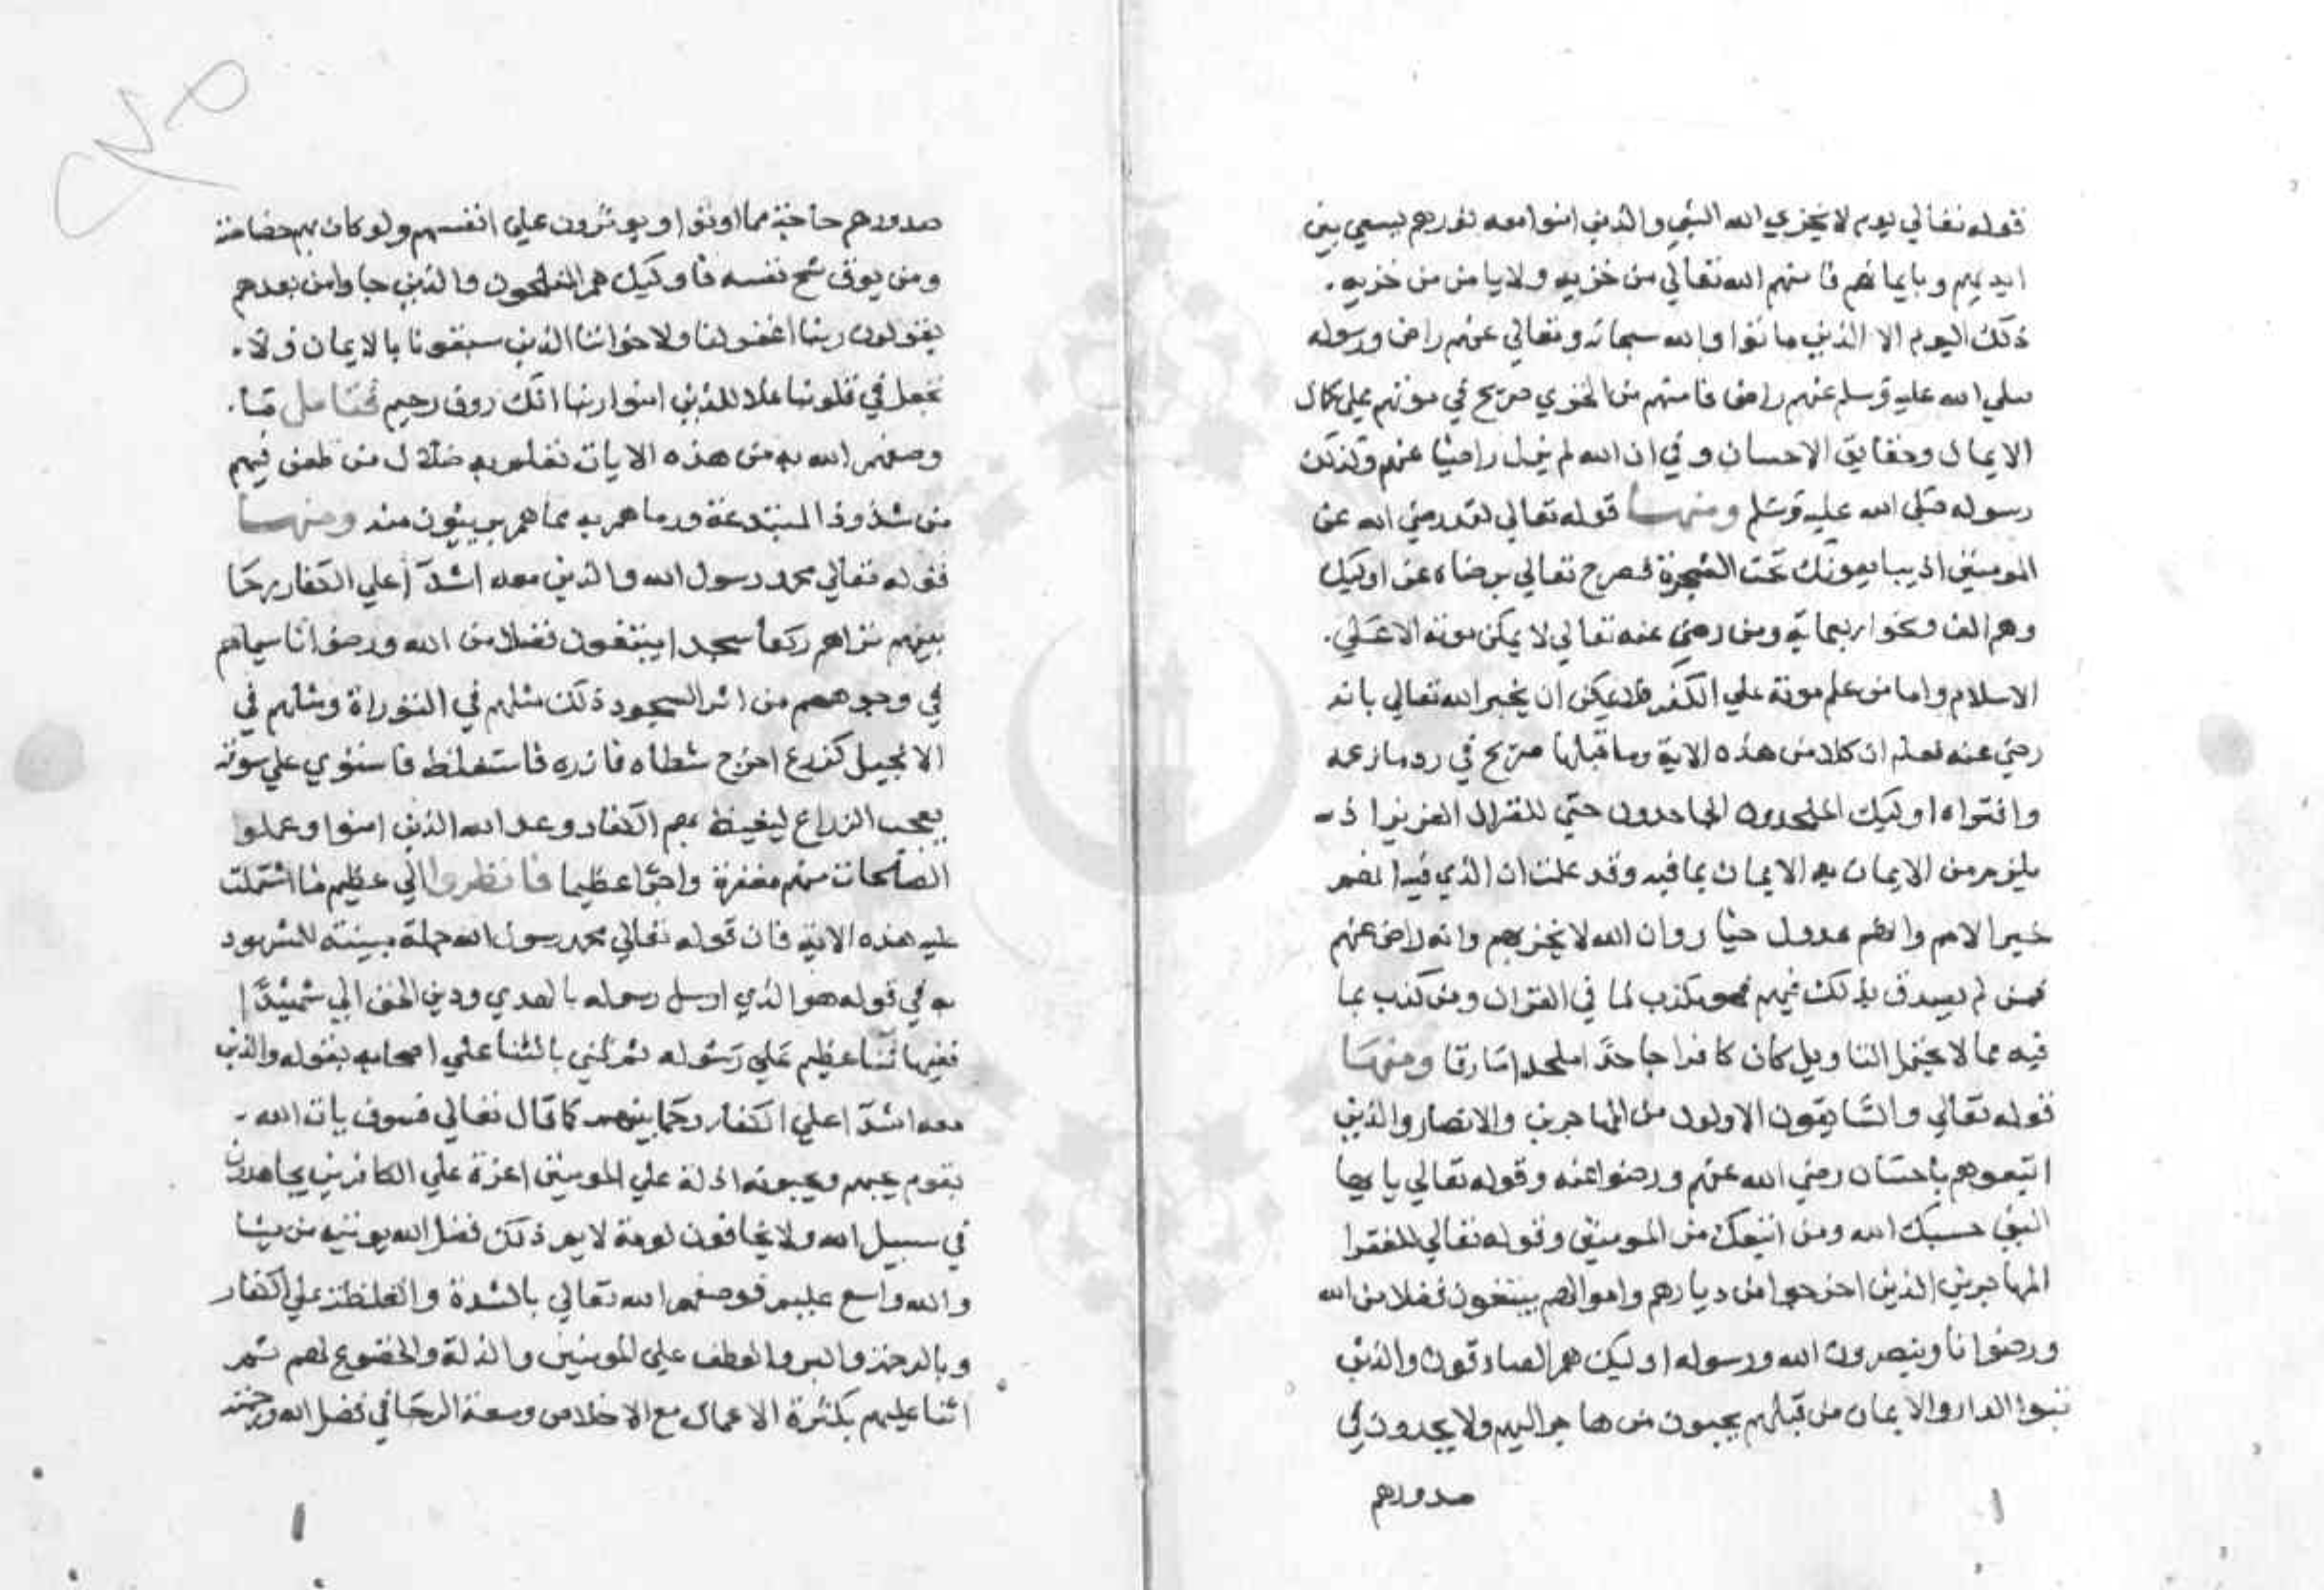 قوله تعالي يوم لا يخزي الله النبي والذين امنوا معه نورهم يسعي بين
ايديهم وبايمانهم فامنهم الله تعالي من خزيه ولا يامن من خزيه .
ذلك اليوم الا الذين ماتوا والله سبحانه وتعالي عنهم راض ورسوله
صلي الله عليه وسلم عنهم راض فامنهم من الخزي صريح في موتهم علي كمال
الايمان وحقايق الاحسان وفي ان الله لم يزل راضيا عنهم وكذلك
رسوله صلي الله عليه وسلم ومنها قوله تعالي لقد رضي الله عن
المومنين اذ يبايعونك تحت الشجرة فصرح تعالي برضاه عن اوليك
وهم الف ونحو اربعماية ومن رضي عنه تعالي لا يمكن موته الا علي .
الاسلام واما من علم موته علي الكفر فلا يمكن ان يخبر الله تعالي بانه
رضي عنه فعلم ان كلا من هذه الاية وما قبلها صريح في رد ما زعمه
وافتراه اوليك الملحدون الجاحدون حتي للقران العزيز اذ
يلزم من الايمان به الايمان بما فيه وقد علمت ان الذي فيه انهم
خير الامم وانهم عدول خيار وان الله لا يخزيهم وانه راض عنهم
فمن لم يصدق بذلك فيهم فهو مكذب لما في القران ومن كذب بما
فيه مما لا يحتمل التاويل كان كافرا جاحدا ملحدا مارقا ومنها
قوله تعالي والسابقون الاولون من المهاجرين والانصار والذين
اتبعوهم باحسان رضي الله عنهم ورضوا عنه وقوله تعالي يا ايها
النبي حسبك الله ومن اتبعك من المومنين وقوله تعالي للفقرا
المهاجرين الذين اخرجوا من ديارهم واموالهم يبتغون فضلا من الله
ورضوانا وينصرون الله ورسوله اوليك هم الصادقون والذين
تبوا الدار والايمان من قبلهم يحبون من هاجر اليهم ولا يجدون في
صدورهم
صدورهم حاجة مما اوتوا ويوثرون علي انفسهم ولو كان بهم خصاصة
ومن يوق شح نفسه فاوليك هم المفلحون والذين جاوا من بعدهم
يقولون ربنا اغفر لنا ولاخواننا الذين سبقونا بالايمان ولا .
تجعل في قلوبنا غلا للذين امنوا ربنا انك روف رحيم فتامل ما .
وصفهم الله به من هذه الايات تعلم به ضلال من طعن فيهم
من شذوذ المبتدعة ورماهم به بما هم بريئون منه ومنها
قوله تعالي محمد رسول الله والذين معه اشدا علي الكفار رحما
بينهم تراهم ركعا سجدا يبتغون فضلا من الله ورضوانا سيماهم
في وجوههم من اثر السجود ذلك مثلهم في التوراة ومثلهم في
الانجيل كزرع اخرج شطاه فازره فاستغلظ فاستوي علي سوقه
يعجب الزراع ليغيظ بهم الكفار وعد الله الذين امنوا وعملوا
الصالحات منهم مغفرة واجرا عظيما فانظر الي عظيم ما اشتملت
عليه هذه الاية فان قوله تعالي محمد رسول الله جملة مبينة للمشهود
به في قوله هو الذي ارسل رسوله بالهدي ودين الحق الي شهيدا
ففيها ثنا عظيم علي رسوله ثم ثني بالثنا علي اصحابه بقوله والذين
معه اشدا علي الكفار رحما بينهم كما قال تعالي فسوف يات الله
بقوم يحبهم ويحبونه اذلة علي المومنين اعزة علي الكافرين يجاهدون
في سبيل الله ولا يخافون لومة لايم ذلك فضل الله يوتيه من يشا
والله واسع عليم فوصفهم الله تعالي بالشدة والغلظة علي الكفار
وبالرحمة والبر والعطف علي المومنين والذلة والخضوع لهم ثم
اثنا عليهم بكثرة الاعمال مع الاخلاص وسعة الرجا في فضل الله ورحمته